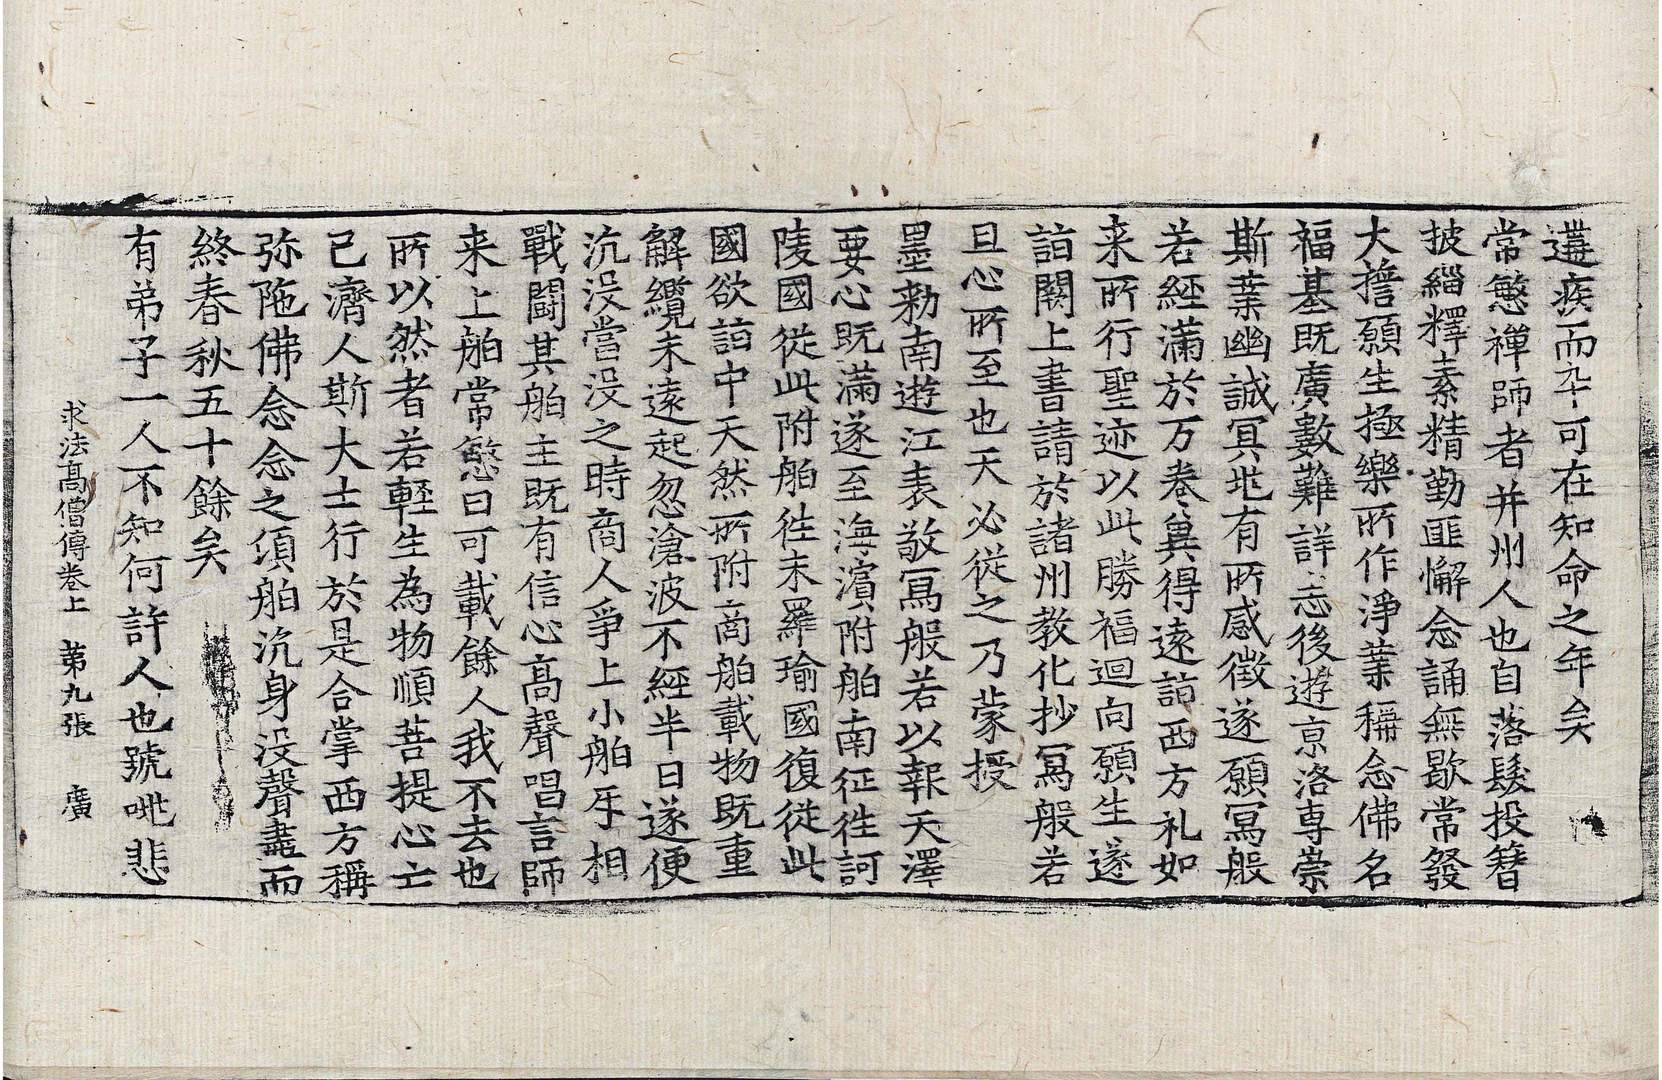 遘疾而卒可在知命之年矣
常慜禪師者并州人也自落髮投簪
披緇釋素精勤匪懈念誦無歇常發
大擔願生極樂所作淨業稱念佛名
福基既廣數難詳㤀後遊京洛専崇
斯業幽誠冥兆有所感徵遂願冩般
若經滿於万卷兾得遠詣西方礼如
来所行聖迹以此勝福迴向願生遂
詣闕上書請於諸州教化抄冩般若
且心所至也天必從之乃蒙授
墨勑南遊江表敬冩般若以報天澤
要心既滿遂至海濱附舶南征往訶
陵國從此附舶往末羅瑜國復從此
國欲詣中天然所附商舶載物既重
解纜未遠起忽滄波不經半日遂便
沉没當没之時商人爭上小舶㸦相
戰鬪其舶主既有信心高聲唱言師
来上舶常慜曰可載餘人我不去也
所以然者若輕生為物順菩提心亡
己濟人斯大士行於是合掌西方稱
弥陁佛念念之須舶沉身没聲盡而
終春秋五十餘矣
有弟子一人不知何許人也號咷悲
求法高僧傳卷上 第九張 廣